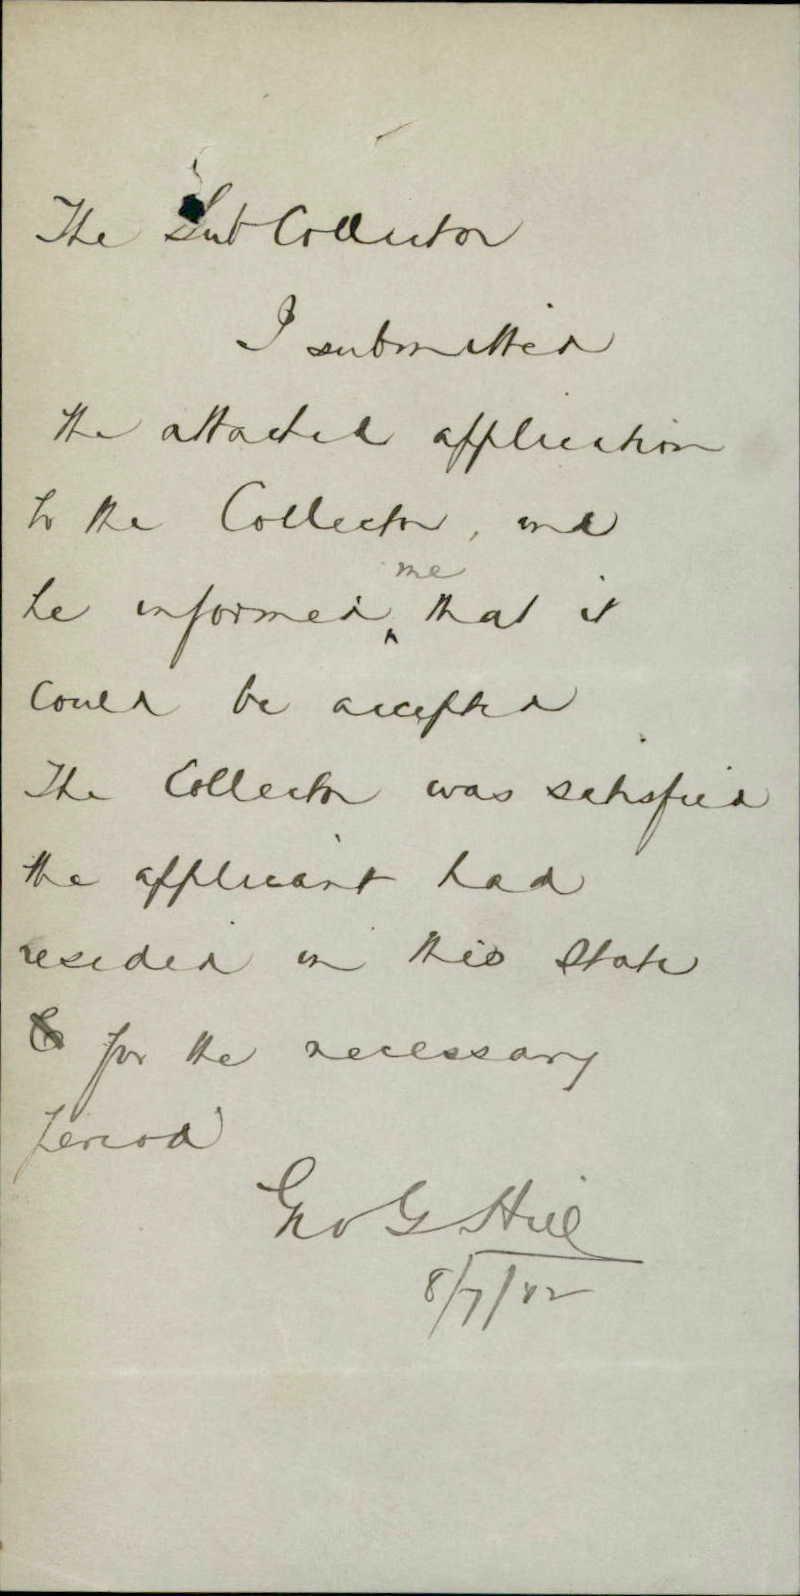 The Sub Collector
I submitted
the attached application
to the Collector, and
me
he informed ^ that it
could be accepted
The Collector was satisfied
the applicant had
resided in this State
for the necessary
period
Geo G Hill
8/7/